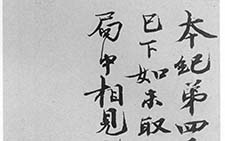 本紀第四
已下如未取
局中相見